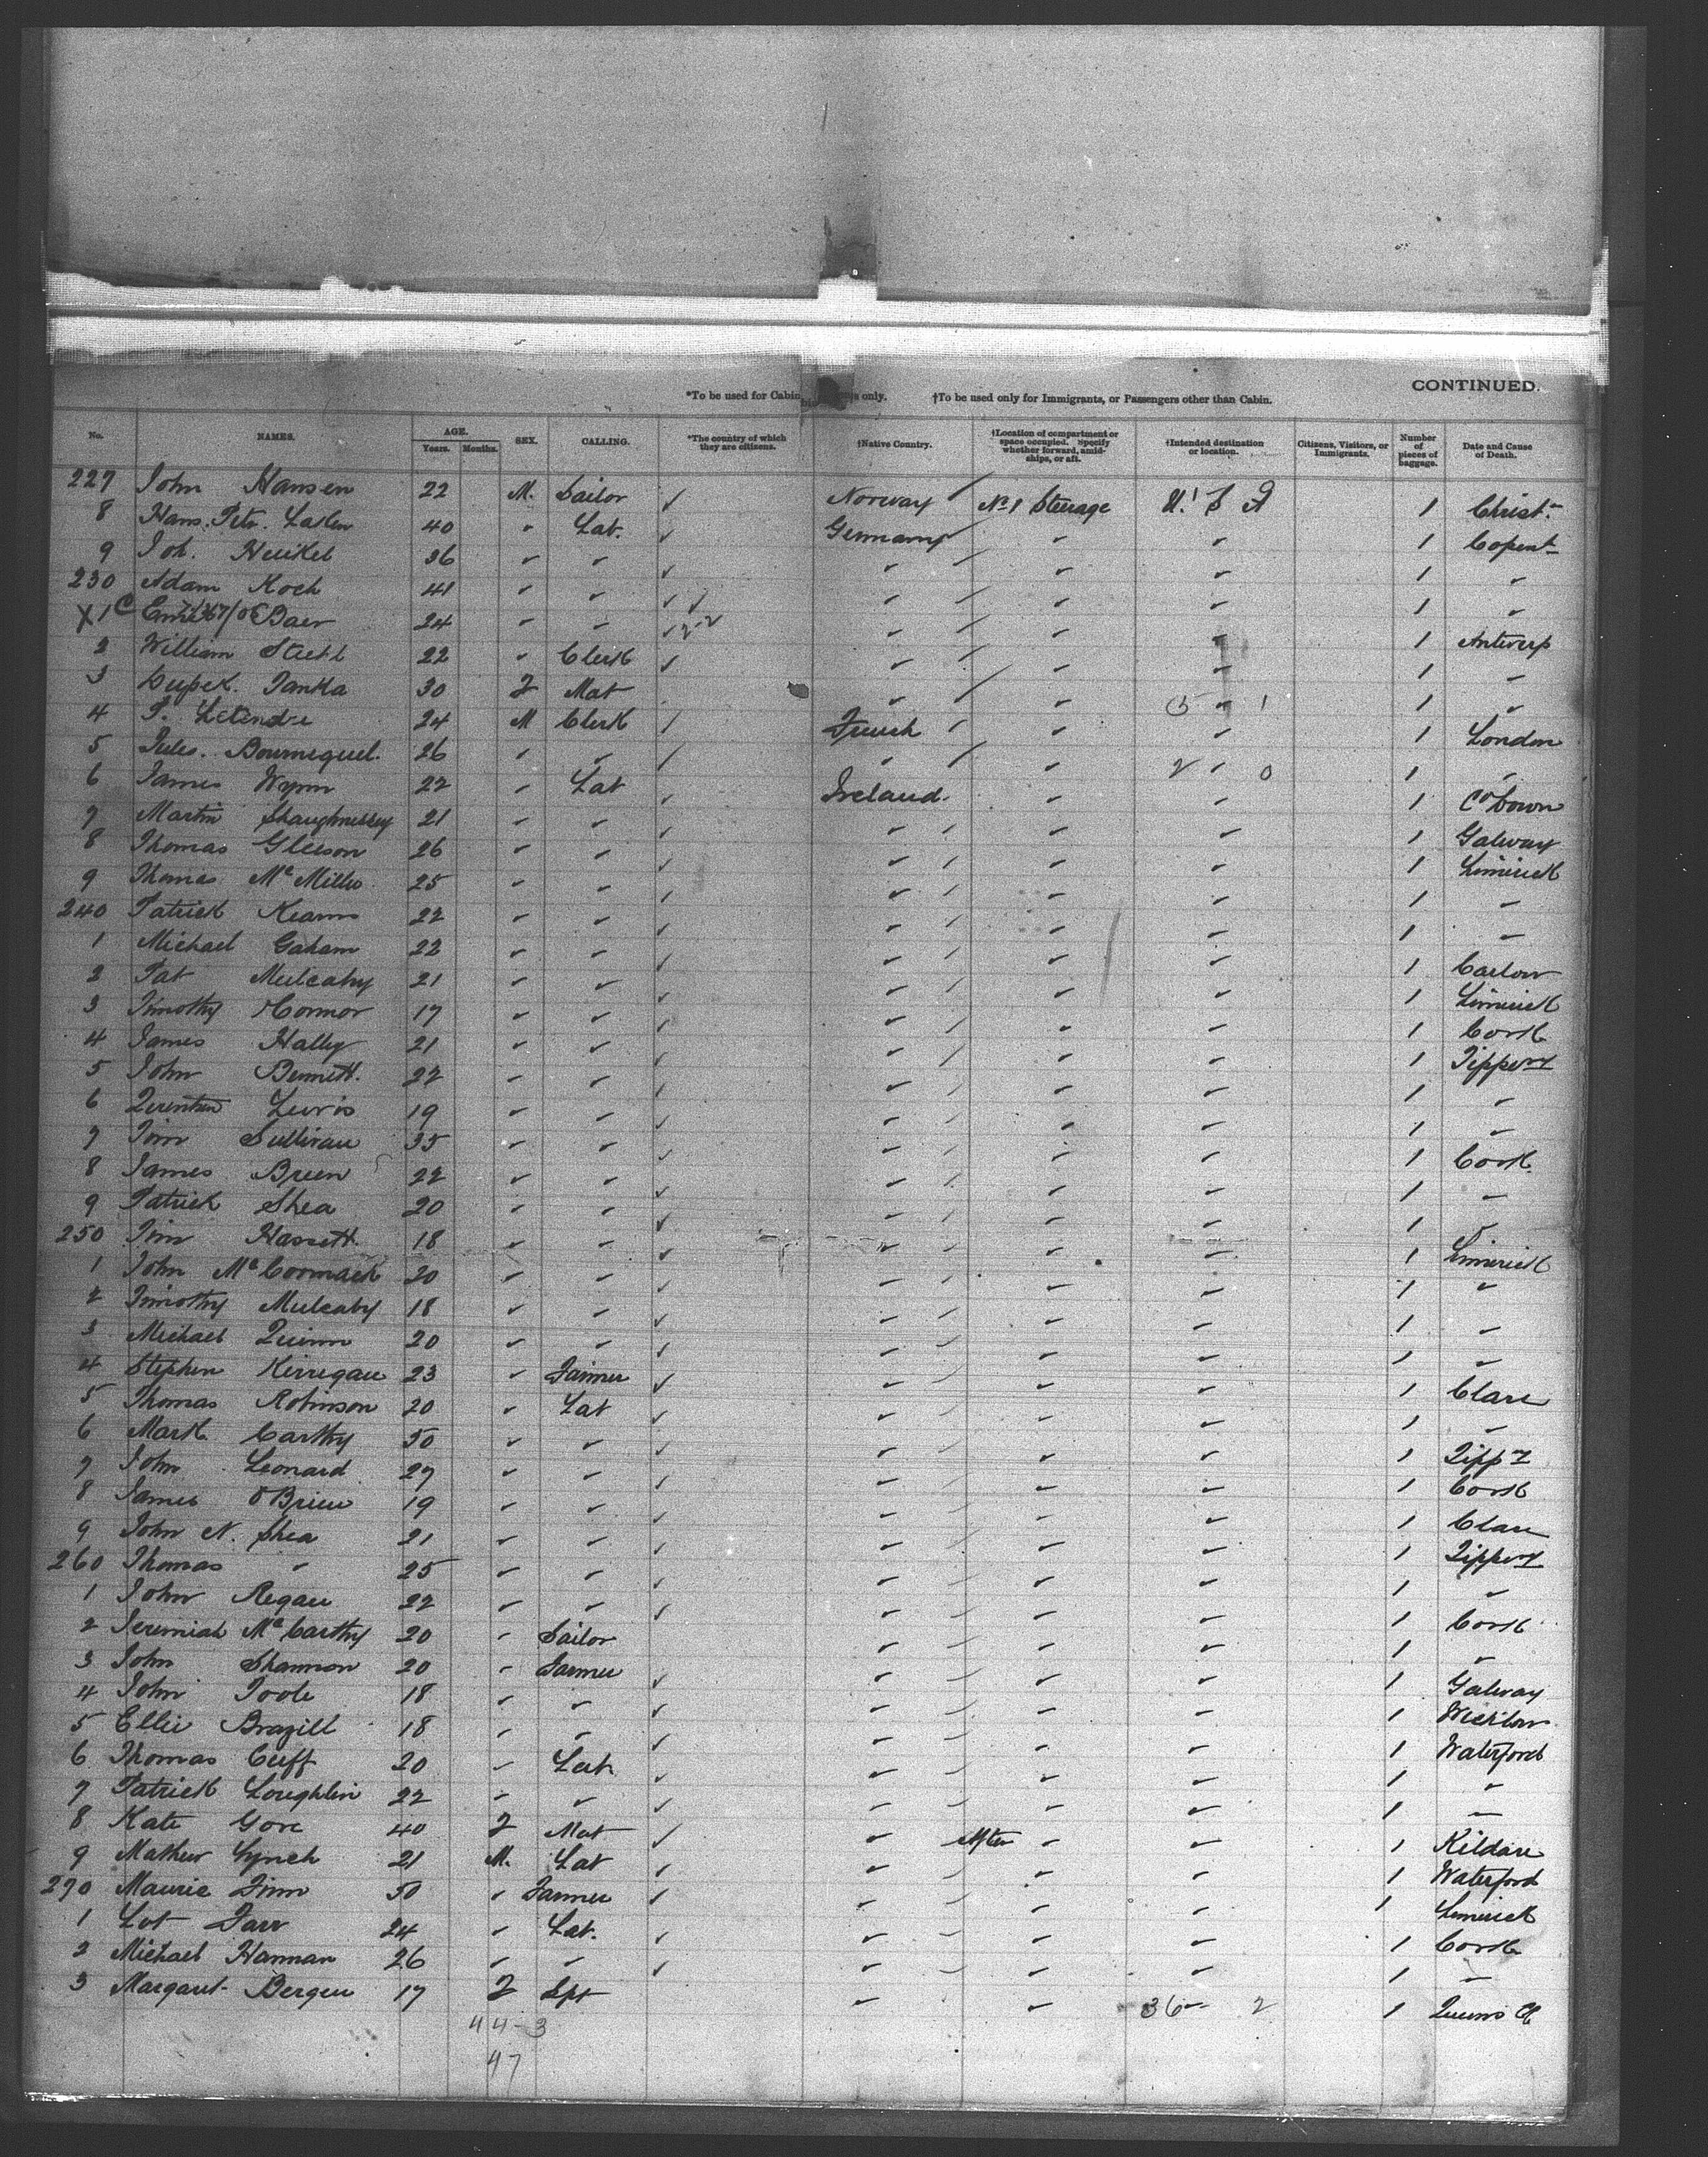 CONTINUED.
*To be used for Cabin only. †To be used only for Immigrants, or Passengers other than Cabin.
No. NAMES. AGE. Years. Months. SEX. CALLING. *The country of which they are citizens. †Native Country. †Location of compartment or space occupied. Specify whether forward, amidships, or aft. †Intended destination or location. Citizens, Visitors, or Immigrants. Number of pieces of baggage. Date and Cause of Death.
227 John Hansen 22 M. Sailor ✓ Norway No 1 Steerage U. S A 1 Christ.
8 Hans. Petr. 40 " Lab. ✓ Germany " " 1 Copent
9 Joh. Heukel 36 " " ✓ " " " 1 "
230 Adam Koch 41 " " ✓ " " " 1 "
X1 C Baer 24 " " ✓ 2-2 " " " 1 Antwerp
2 William Stiehl 22 " Clerk ✓ " " " 1 "
3 Janka 30 F Mat " " " 1 "
5 - 1
4 P. Letendre 24 M Clerk / French " " 1 London
5 Jules. 26 " " / " " " 1 "
2 - 0
6 James Wynn 22 " Lab ✓ Ireland. " " 1 Co Down
7 Martin Shaughnessy 21 " " ✓ " " " 1 Galway
8 Thomas Gleeson 26 " " ✓ " " " 1 Limerick
9 Thomas 25 " " ✓ " " " 1 "
240 Patrick Kearns 22 " " ✓ " " " 1 "
1 Michael Gaham 22 " " ✓ " " " 1 Carlow
2 Pat Mulcahy 21 " " ✓ " " " 1 Limerick
3 Timothy OConnor 17 " " ✓ " " " 1 Cork
4 James Hally 21 " " ✓ " " " 1 Tippery
5 John Bennett. 22 " " ✓ " " " 1 "
6 Lewis 19 " " ✓ " " " 1 "
7 Tim Sullivan 35 " " ✓ " " " 1 Cork
8 James Breen 22 " " ✓ " " " 1 "
9 Patrick Shea 20 " " ✓ " " " 1 "
250 Tim Hassett 18 " " ✓ " " " 1 Limerick
1 John McCormack 20 " " ✓ " " " 1 "
2 Timothy Mulcahy 18 " " ✓ " " " 1 "
3 Michael Quinn 20 " " ✓ " " " 1 "
4 Stephen Kerregan 23 " Farmer ✓ " " " 1 Clare
5 Thomas Robinson 20 " Lab ✓ " " " 1 "
6 Mark Carthy 50 " " ✓ " " " 1 Tippy
7 John Leonard 27 " " ✓ " " " 1 Cork
8 James OBrien 19 " " ✓ " " " 1 Clare
9 John N. Shea 21 " " ✓ " " " 1 Tippery
260 Thomas " 25 " " ✓ " " " 1 "
1 John Regan 22 " " ✓ " " " 1 Cork
2 Jeremiah McCarthy 20 " Sailor " " " 1 "
3 John Shannon 20 " Farmer ✓ " " " 1 Galway
4 John Toole 18 " " ✓ " " " 1 Wicklow
5 Ellie Brazill 18 " " ✓ " " " 1 Waterford
6 Thomas Cuff 20 " Lab ✓ " " " 1 "
7 Patrick Loughlin 22 " " ✓ " " " 1 "
8 Kate Gore 40 F Mat ✓ " After " " 1 Kildare
9 Mathew Lynch 21 M. Lab ✓ " " " 1 Waterford
270 Maurice Finn 50 " Farmer ✓ " " " 1 Limerick
1 Lot Farr 24 " Lab. ✓ " " " 1 Cork
2 Michael Hannan 26 " " ✓ " " " 1 "
3 Margaret Bergen 17 F Spt " " 36 - 2 1 Queens Co
44-3
47